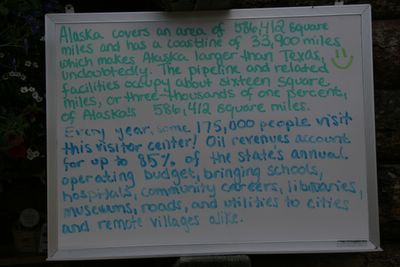 Alaska covers an area of 586,412 square
miles and has a coastline of 33,900 miles
which makes Alaska larger than Texas,
undoubtedly. The pipeline and related
facilities occupy about sixteen square
miles, or three-thousands of one percent,
of Alaska's 586,412 square miles.
Every year, some 175,000 people visit
this visitor center! Oil revenues account
for up to 85% of the state's annual
operating budget, bringing schools,
hospitals, community careers, libraries,
museums, roads, and utilities to cities
and remote villages alike.